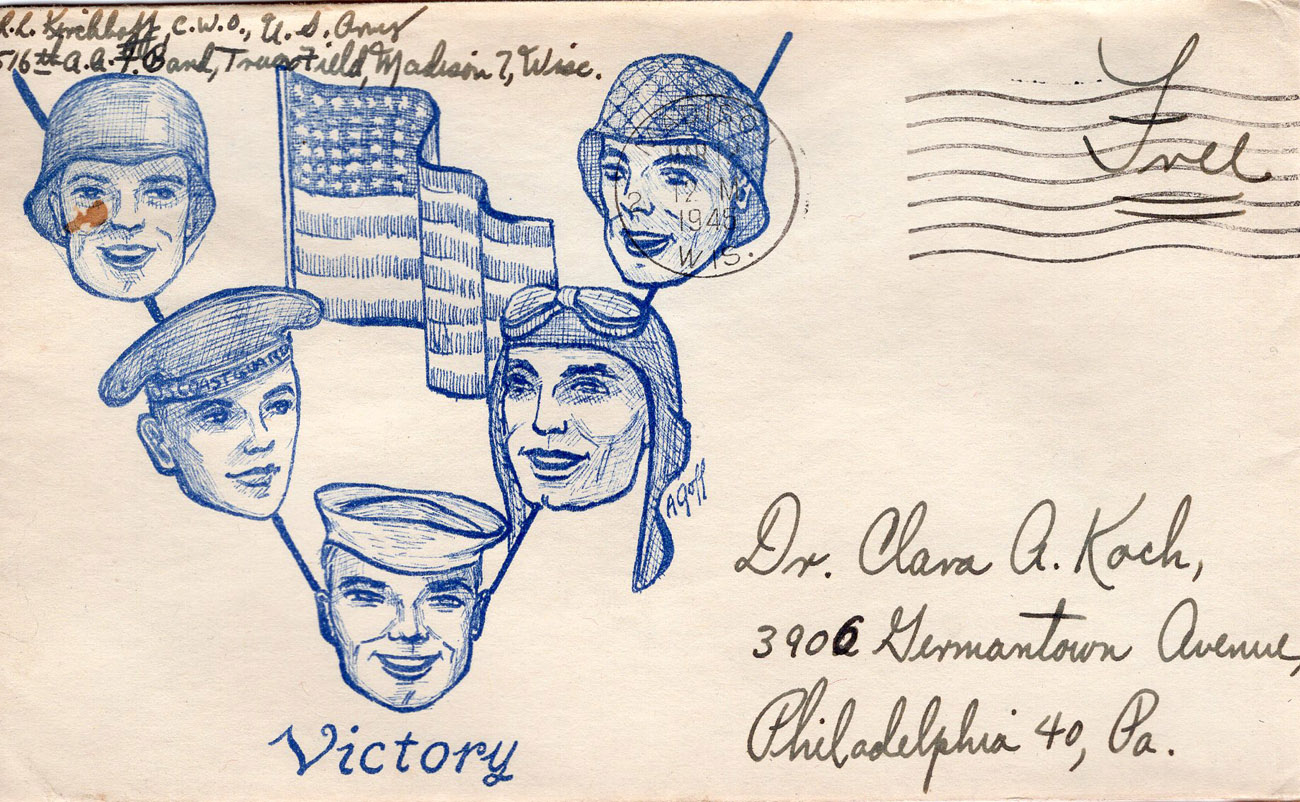 R.L. Kirchhoff, C.W.O., U.S. Army
516th A.A.F. Band, Truax Field, Madison 7, Wisc.
Free
12 M
1945
WIS.
U.S. COAST GUARD
A Goff
Dr. Clara A. Koch,
3906 Germantown Avenue,
Philadelphia 40, Pa.
Victory